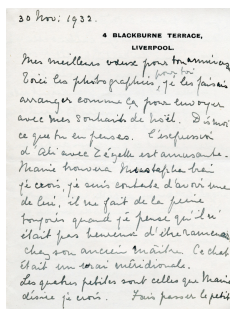 30 Nov. 1932.
4 BLACKBURNE TERRACE,
LIVERPOOL.
Mes meilleurs vœux pour ton
pour toi
Voici les photographies, je les faisais
arranger comme ça pour envoyer
avec mes souhaits de Noël. Dis moi
ce que tu en penses. L'expression
d'Ali avec est amusante.
Marie trouvera Moustapha bien
je crois, je suis contente d'avoir une
de lui, il me fait de la peine
toujours quand je pense qu'il n'
était pas heureux d'être ramené
chez son ancien maître. Ce chat
était un vrai méridional.
Les quatres petites sont celles que Marie
désire je crois. Fais passer le petit